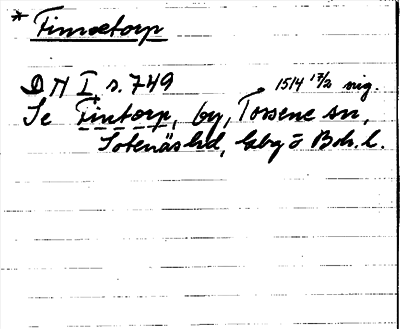 * Finnetorp
DN I, s. 749 1514 17/2 nig.
Se Fintorp, by, Tossene sn,
Sotenäs hd, Gbg o Boh. l.